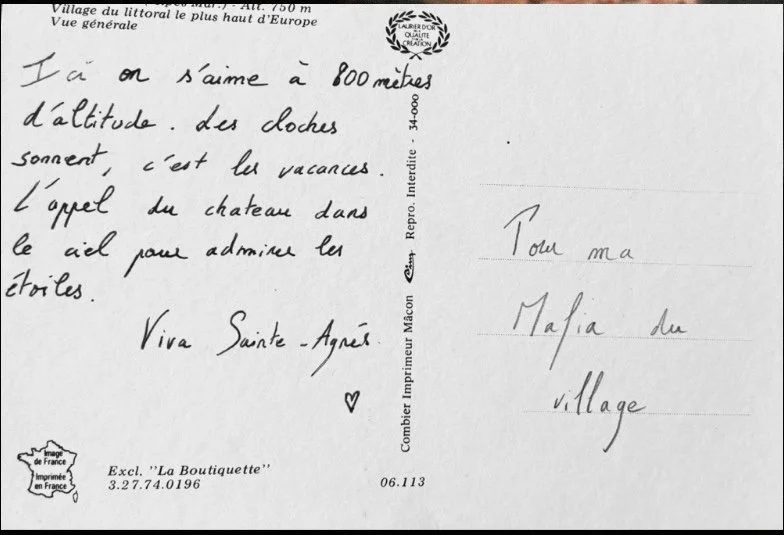 Alt. 750 m
Village du littoral le plus haut d'Europe
Vue générale
LAURIER D'OR
DE LA
QUALITÉ
CRÉATION
Ici on s'aime à 800 mètres
d'altitude. Les cloches
sonnent, c'est les vacances.
L'appel du chateau dans
le ciel pour admirer les
étoiles.
Viva Sainte-Agnés
Image
de France
Imprimée
en France
Excl. "La Boutiquette"
3.27.74.0196
06.113
Combier Imprimeur Mâcon Cim Repro. Interdite - 34-000
Pour ma
Mafia du
village